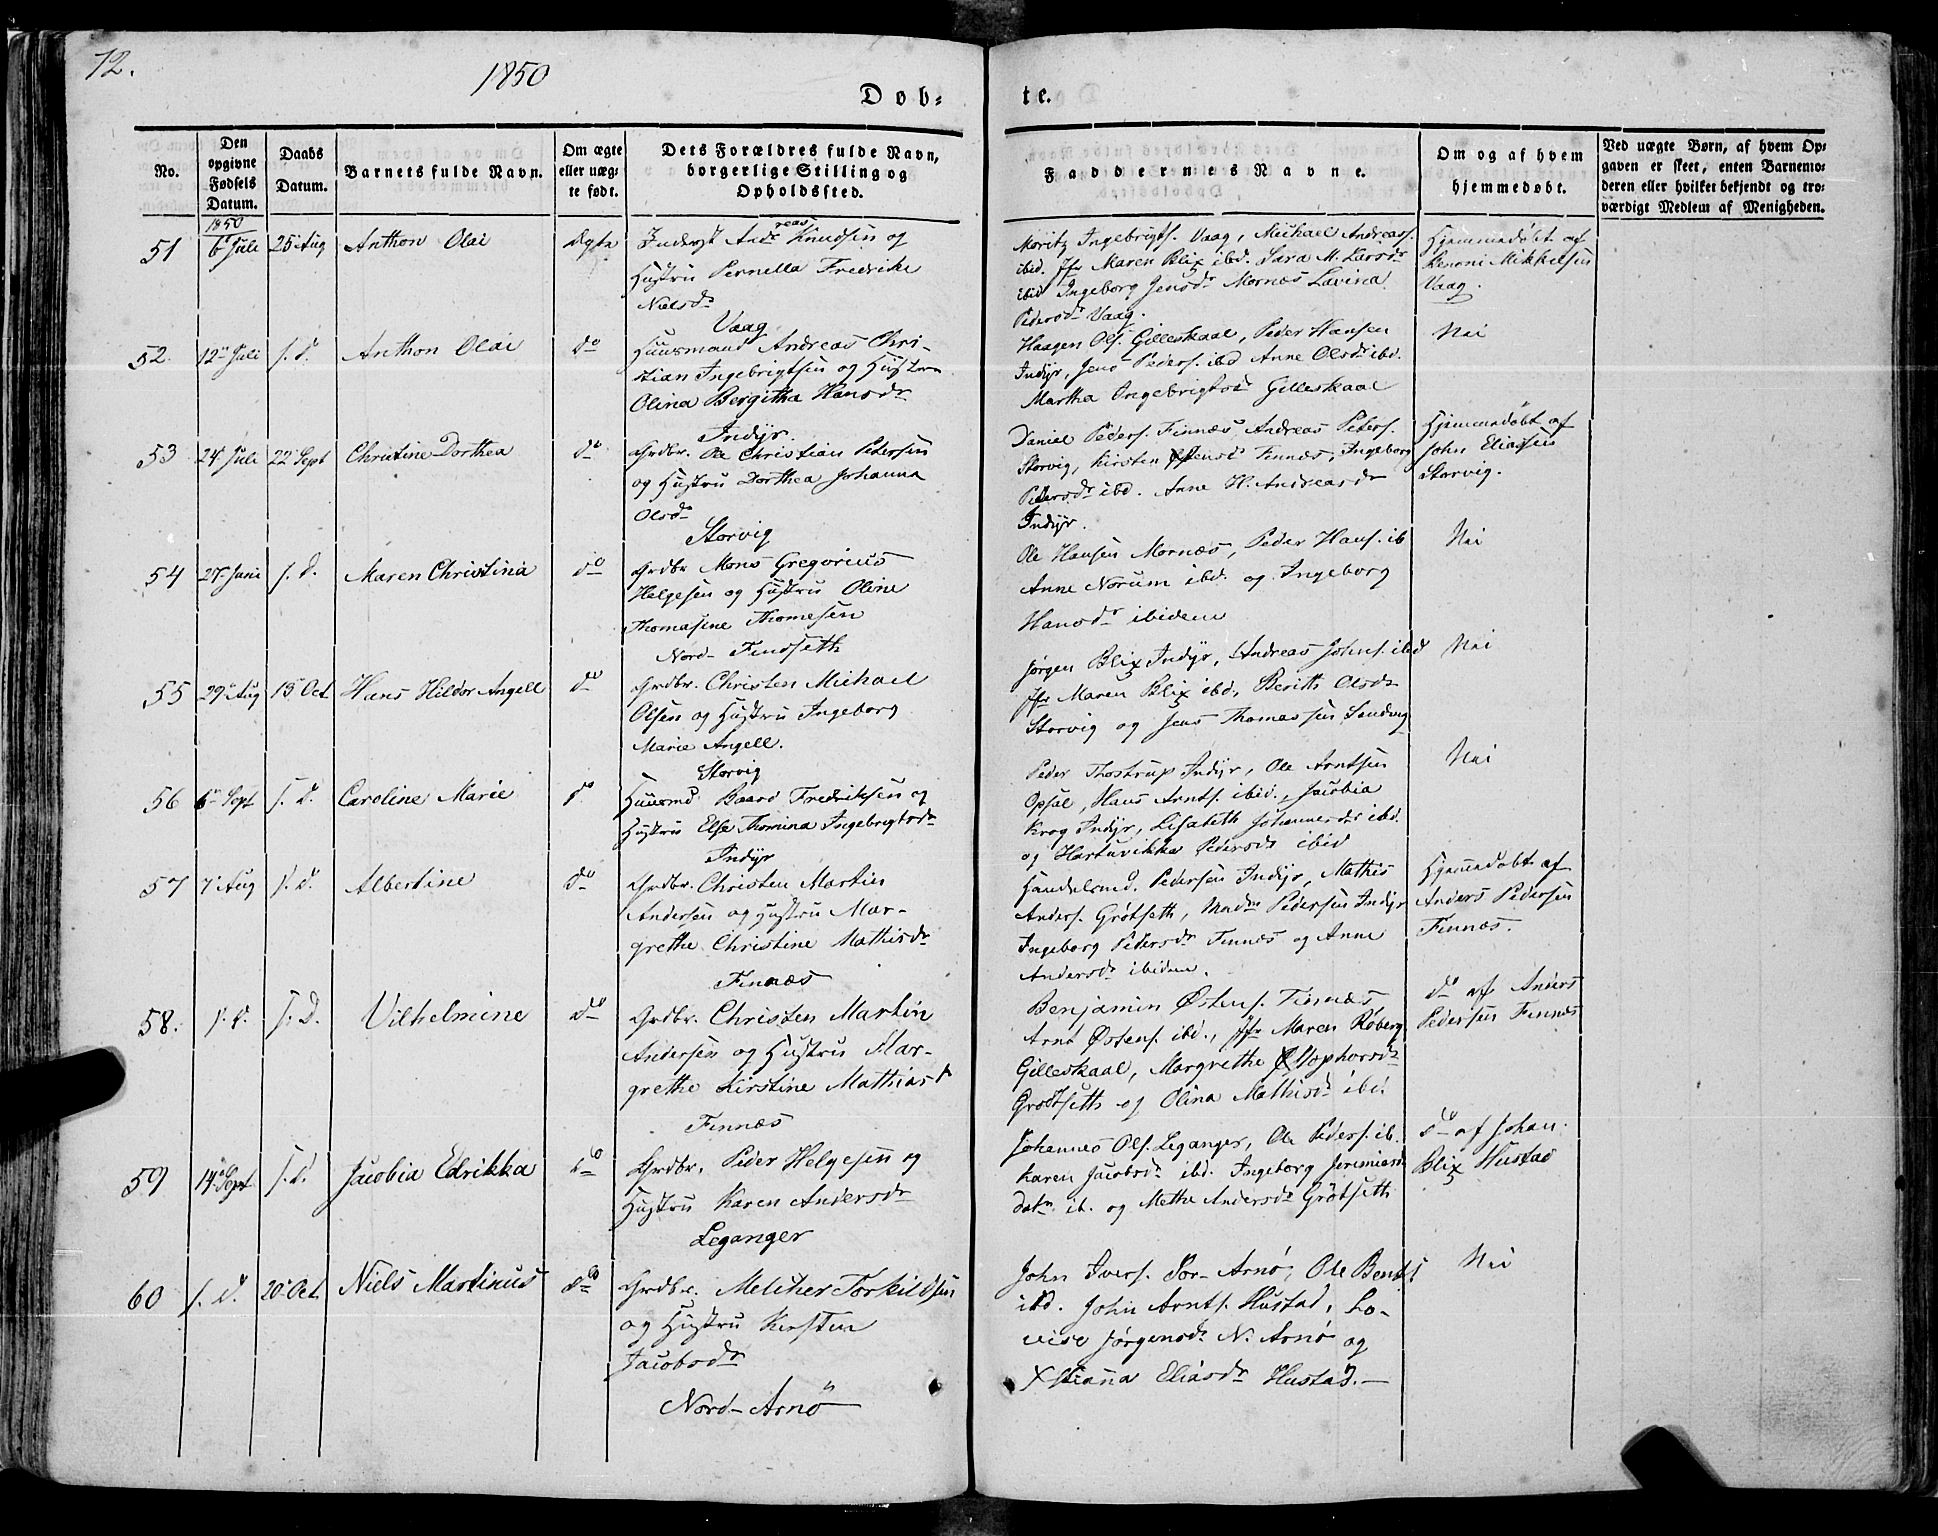 72.
1850
Døb-
te.
No.
Den opgivne Fødsels Datum.
Daabs Datum.
Barnets fulde Navn.
Om ægte eller uægte født.
Dets Forældres fulde Navn, borgerlige Stilling og Opholdssted.
Faddernes Navne.
Om og af hvem hjemmedøbt.
Ved uægte Børn, af hvem Opgaven er skeet, enten Barnemoderen eller hvilket bekjendt og troværdigt Medlem af Menigheden.
1850
51 6 Juli 25 Aug Anthon Olai Ægte
Inderst Andreas Knudsen og
Hustru Pernella Fredrike
Nielsd.
Vaag
Moritz Ingebrigts. Vaag, Michael Andreas.
ibid. Jfr Maren Blix ibd. Sara M. Larsdr
ibid Ingeborg Jensdr Mornæs Lavina
Pedersdr Vaag.
Hjemmedøbt af
Benoni Mikkelsen
Vaag.
52. 12 Juli s. d. Anthon Olai do
Huusmand Andreas Chri-
stian Ingebrigtsen og Hustru
Olina Bergitha Hansdr
Indyr.
Haagen Ols. Gilleskaal, Peder Hansen
Indyr, Jens Peders. ibd Anne Olsdr ibd.
Martha Ingebrigtsd Gilleskaal
Nei
53 24 Juli 22 Sept Christine Dorthea do
Grdbr. Ole Christian Petersen
og Hustru Dorthea Johanna
Olsd.
Storvig
Daniel Peders. Finnæs, Andreas Peters.
Storvig, Kirsten Østensd. Finnæs, Ingeborg
Pedersdr ibd. Anne H. Andreasdr
Indyr.
Hjemmedøbt af
John Eliassen
Storvig.
54 27 Juni s. d. Maren Christina do
Grdbr Mons Gregorius
Helgesen og Hustru Oline
Thomasine Thomesen
Nord-Findseth
Ole Hansen Mornæs, Peder Hans. ib
Anne Norum ibd. og Ingeborg
Hansdr ibidem
Nei
55 29 Aug 15 Oct Hans Hildor Angell do
Grdbr. Christen Michael
Olsen og Hustru Ingeborg
Marie Angell.
Storvig
Jørgen Blix Indyr, Andreas Johns. ibd
Jfr Maren Blix ibd, Berith Olsdr
Storvig og Jens Thomassen Sandvig
Nei
56 6 Sept s. d. Caroline Marie do
Huusmd Baard Fredriksen og
Hustru Else Thomina Ingebrigtsdr
Indyr
Peder Thostrup Indyr, Ole Arntsen
Opsal, Hans Arnts. ibid., Jacobia
Krog Indyr, Lisabeth Johannesdr ibd.
og Hartuvikka Pedersdr ibid
Nei
57 7 Aug s. d. Albertine do
Grdbr. Christen Martin
Andersen og Hustru Mar-
grethe Christine Mathisdr
Finnæs
Handelsmd. Pedersen Indyr, Mathis
Anders. Grøtseth, Madm Pedersen Indyr
Ingeborg Pedersdr Finnæs og Anne
Andersdr ibidem.
Hjemmedøbt af
Anders Pedersen
Finnæs.
58. s. d. s. D. Vilhelmine do
Grdbr. Christen Martin
Andersen og Hustru Mar-
grethe Kirstine Mathiasd
Finnæs
Benjamin Østens. Finnæs
Arnt Østens. ibd., Jfr Maren Røberg
Gilleskaal, Margrethe Xstophersdr
Grøtseth og Olina Mathisdr ibid
do af Anders
Pedersen Finnæs
59 14 Sept s. d. Jacobia Edrikka do
Grdbr. Peder Helgesen og
Hustru Karen Andersdr
Leganger
Johannes Ols. Leganger, Ole Peders. ib.
Karen Jacobsdr ibd. Ingeborg Jeremias
datr ib. og Methe Andersdr Grøtseth
do af Johan
Blix Hustad
60 s. d. 20 Oct Niels Martinus do
Grdbr. Melcher Torkildsen
og Hustru Kirsten
Jacobsdr
Nord-Arnø
John Ivers. Sør-Arnø, Ole Bents
ibd. John Arnts. Hustad, Lo-
vise Jørgensdr N. Arnø og
Xstianna Eliasdr Hustad.
Nei